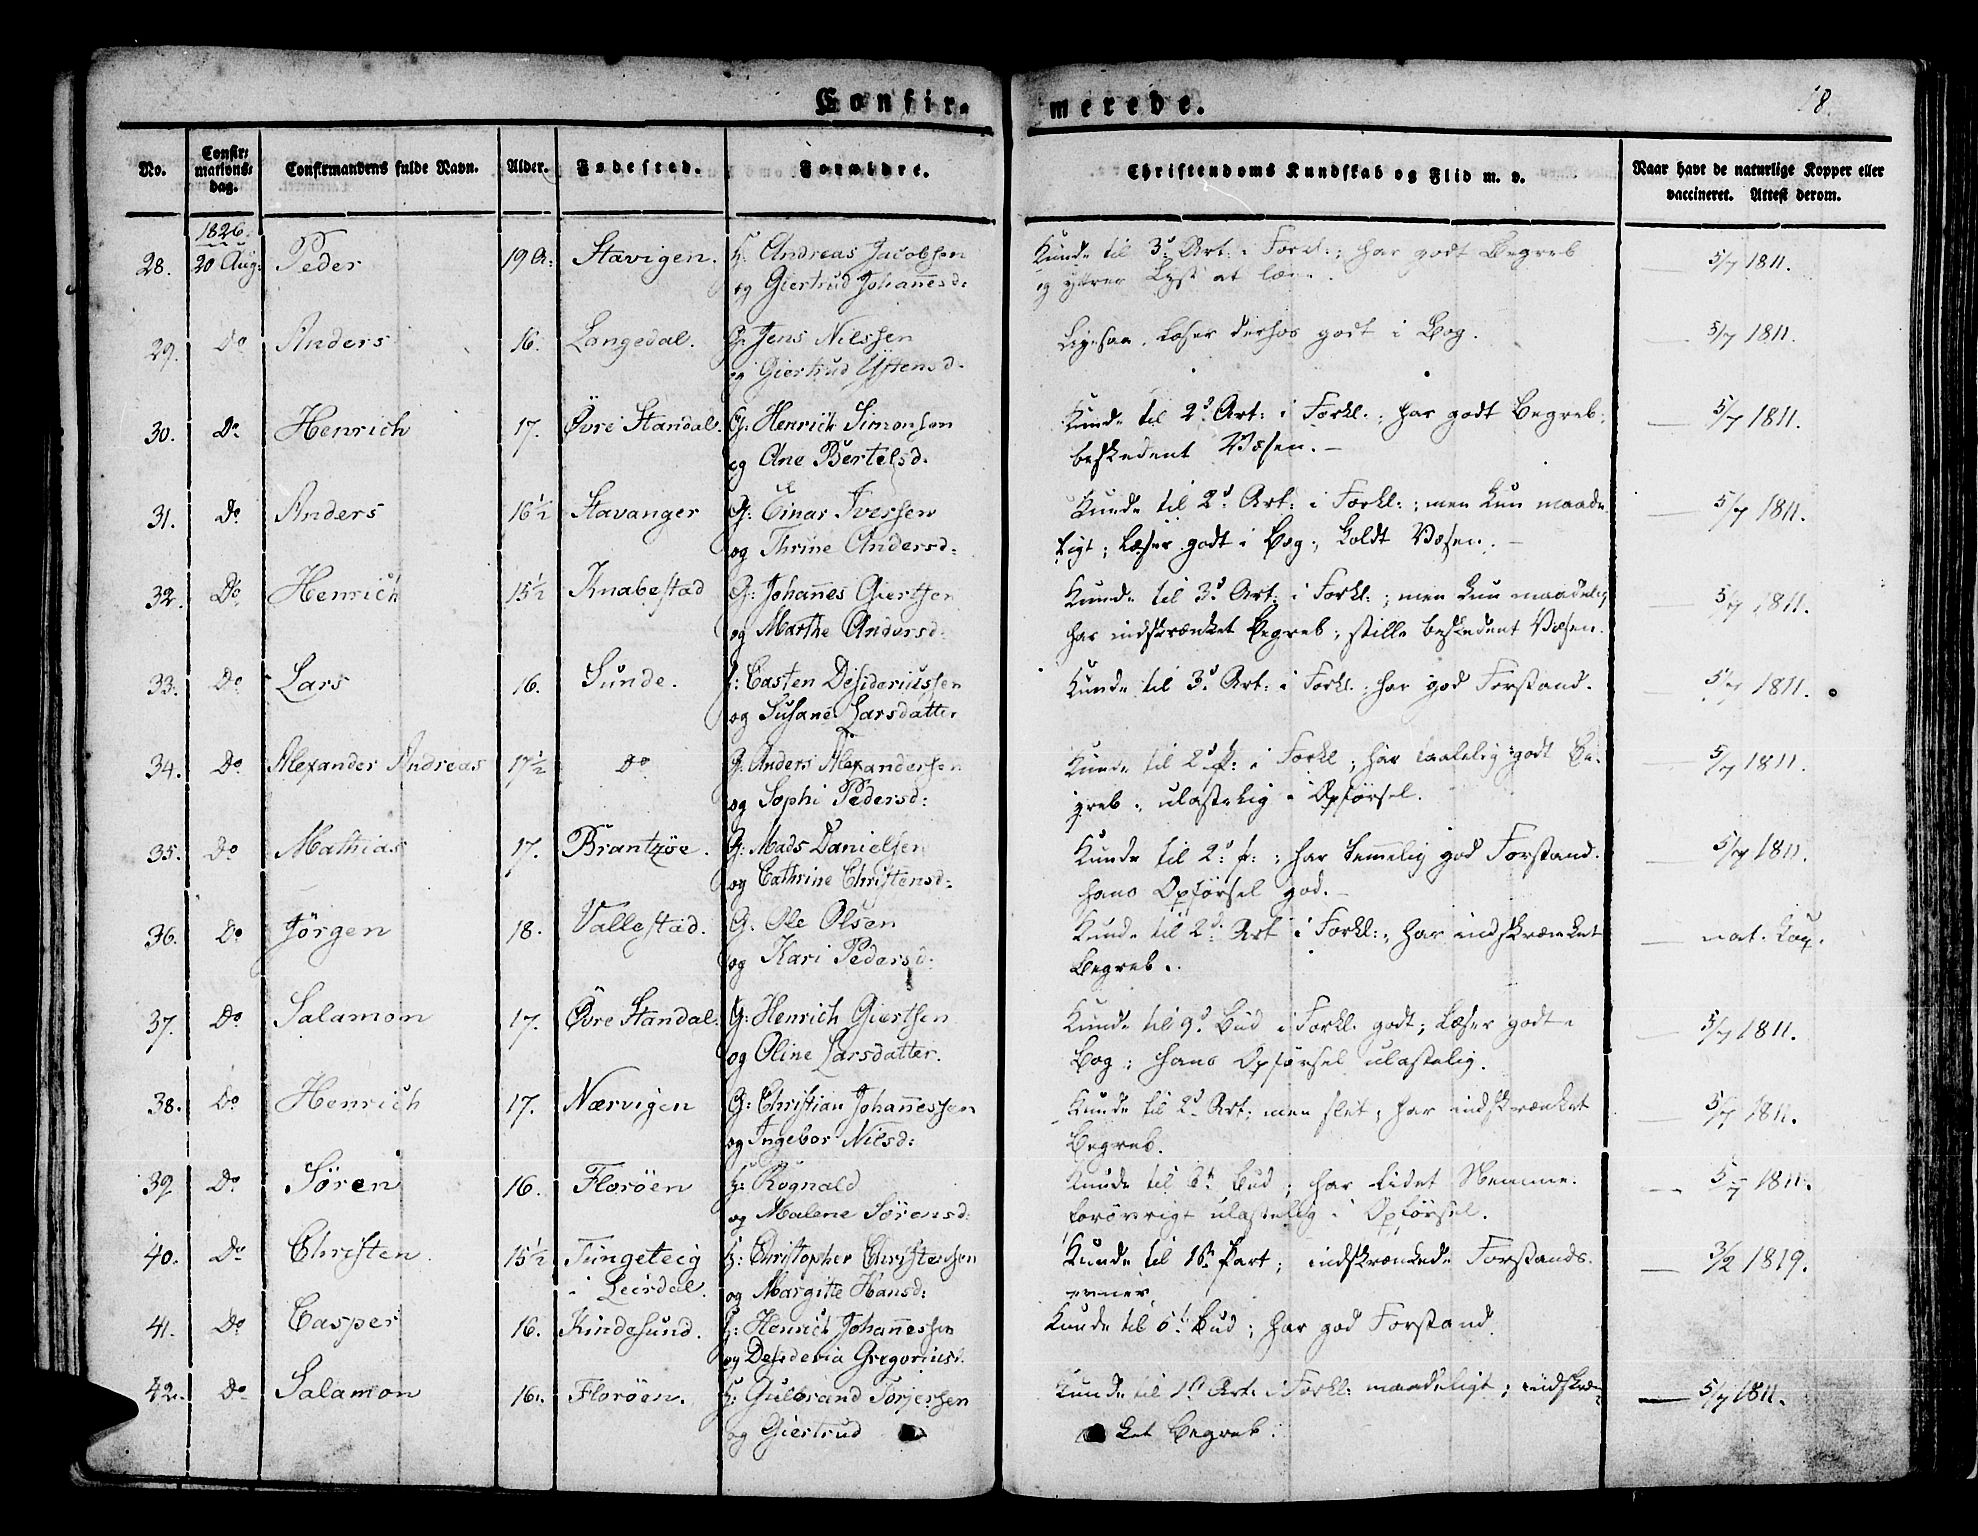 Confir-
merede.
18.
No.
Confir-
mations-
dag.
Confirmandens fulde Navn.
Alder.
Fødested.
Forældre.
Christendoms Kundskab og Flid m. v.
Naar havt de naturlige Kopper eller
vaccineret. Attest derom.
1826.
28. 20 Aug: Peder 19 A: Stavigen. G: Andreas Jacobsen Kunde til 3d Art: i Forkl.; har godt Begreb 5/7 1811.
og Giertrud Johannesd: og yttrer Lyst at lære.
29. Do Anders 16. Langedal. G: Jens Nilssen Ligesaa, læser derhos godt i Bog. 5/7 1811.
og Giertrud
30. Do Henrich 17. Övre Standal. G: Henrich Simonsen Kunde til 2d Art: i Forkl.; har godt Begreb, 5/7 1811.
og Ane Bertelsd. beskedent Væsen.
31. Do Anders 16 1/2 Stavanger G: Einar Iversen Kunde til 2d Art: i Forkl:; men kun maade- 5/7 1811.
og Thrine Andersd: ligt; læser godt i Bog, koldt Væsen.
32. Do Henrich 15 1/2 Knabestad G: Johannes Giertsen Kunde til 3d Art: i Forkl:; men kun maadelig 5/7 1811.
og Marthe Andersd: har indskrænket Begreb, stille beskedent Væsen.
33. Do Lars 16. Sunde. G: Casten Desideriussen Kunde til 3d Art: i Forkl.; har god Forstand. 5/7 1811.
og Susane Larsdatter
34. Do Alexander Andreas 17 1/2 Do G: Anders Alexandersen Kunde til 2d i Forkl; har taalelig godt Be- 5/7 1811.
og Sophi Pedersd: greb, ulastelig i Opförsel.
35. Do Mathias 17. Brantzöe. G: Mads Danielsen Kunde til 2d; har temmelig god Forstand. 5/7 1811.
og Cathrine Christensd: hans Opförsel god.
36. Do Jörgen 18. Vallestad. G. Ole Olsen Kunde til 2d Art i Forkl:, har indskrænket nat. Kop.
og Kari Pedersd. Begreb.
37. Do Salamon 17. Övre Standal. G: Henrich Giertsen Kunde til 9d Bud i Forkl. godt; læser godt i 5/7 1811.
og Oline Larsdatter. Bog; hans Opförsel ulastelig.
38. Do Henrich 17. Nærvigen G: Christian Johannessen Kunde til 2d Art: men slet; har indskrænket 5/7 1811.
og Ingebor Nilsd: Begreb.
39 Do Sören 16. Floröen G: Rognald Kunde til 6te Bud; har lidet Nemme. 5/7 1811.
og Malene Sörensd: forövrigt ulastelig i Opförsel.
40. Do Christen. 15 1/2 Tungeteig G: Christopher Christensen Kunde til 1ste Part; indskrænkede Forstands- 3/2 1819.
i Leirdal. og Margitte Hansd: evner.
41. Do Casper 16. Kindesund. G: Henrich Johannessen Kunde til 6te Bud; har god Forstand.
og Desideria Gregoriusd.
42. Do Salamon 16. Floröen. G: Gulbrand Torjersen Kunde til 1ste Art: i Forkl: maadeligt; indskræn- 5/7 1811.
og Giertrud ket Begreb.